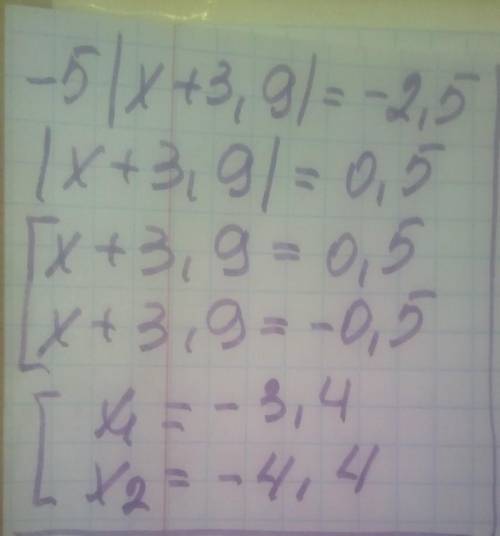 -5|x+3,9|=-2,5
|x+3,9|=0,5
[x+3,9=0,5
x+3,9=-0,5
[x1=-3,4
x2=-4,4